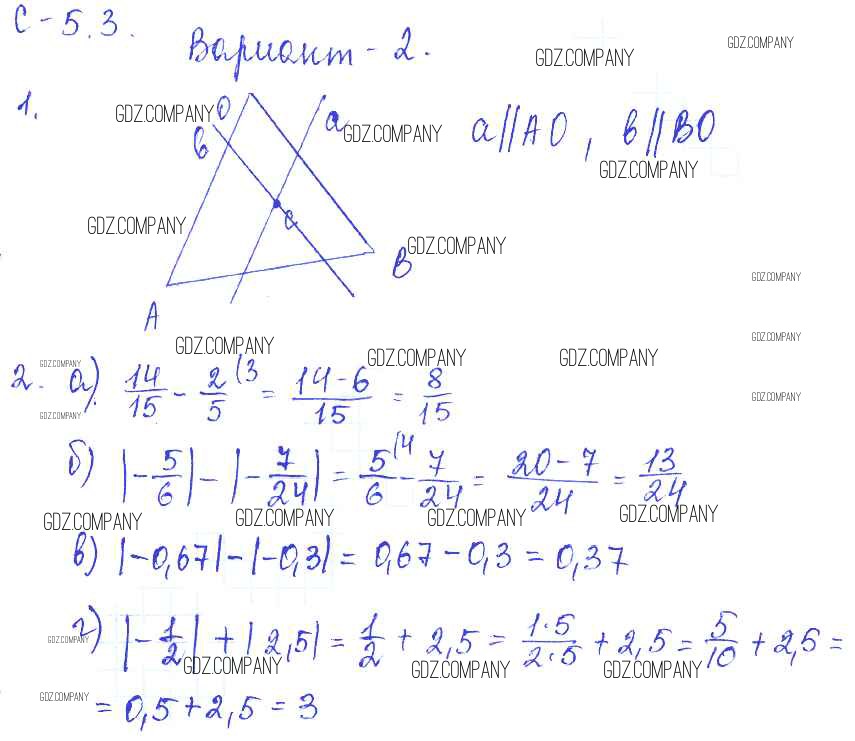 С-5.3.
Вариант-2.
GDZ.COMPANY GDZ.COMPANY
1. GDZ.COMPANY O
в a GDZ.COMPANY a||AO, в||BO
GDZ.COMPANY
GDZ.COMPANY C
B GDZ.COMPANY
GDZ.COMPANY
A
GDZ.COMPANY GDZ.COMPANY GDZ.COMPANY GDZ.COMPANY
2. GDZ.COMPANY а) 14/15 - 2/5 (3 = (14-6)/15 = 8/15
GDZ.COMPANY GDZ.COMPANY
б) |-5/6| - |-7/24| = 5/6 (4 - 7/24 = (20-7)/24 = 13/24
GDZ.COMPANY GDZ.COMPANY GDZ.COMPANY GDZ.COMPANY
в) |-0,67|-|-0,3| = 0,67-0,3 = 0,37
г) |-1/2| + |2,5| = 1/2 + 2,5 = (1·5)/(2·5) + 2,5 = 5/10 + 2,5 =
GDZ.COMPANY GDZ.COMPANY GDZ.COMPANY GDZ.COMPANY
GDZ.COMPANY = 0,5+2,5 = 3